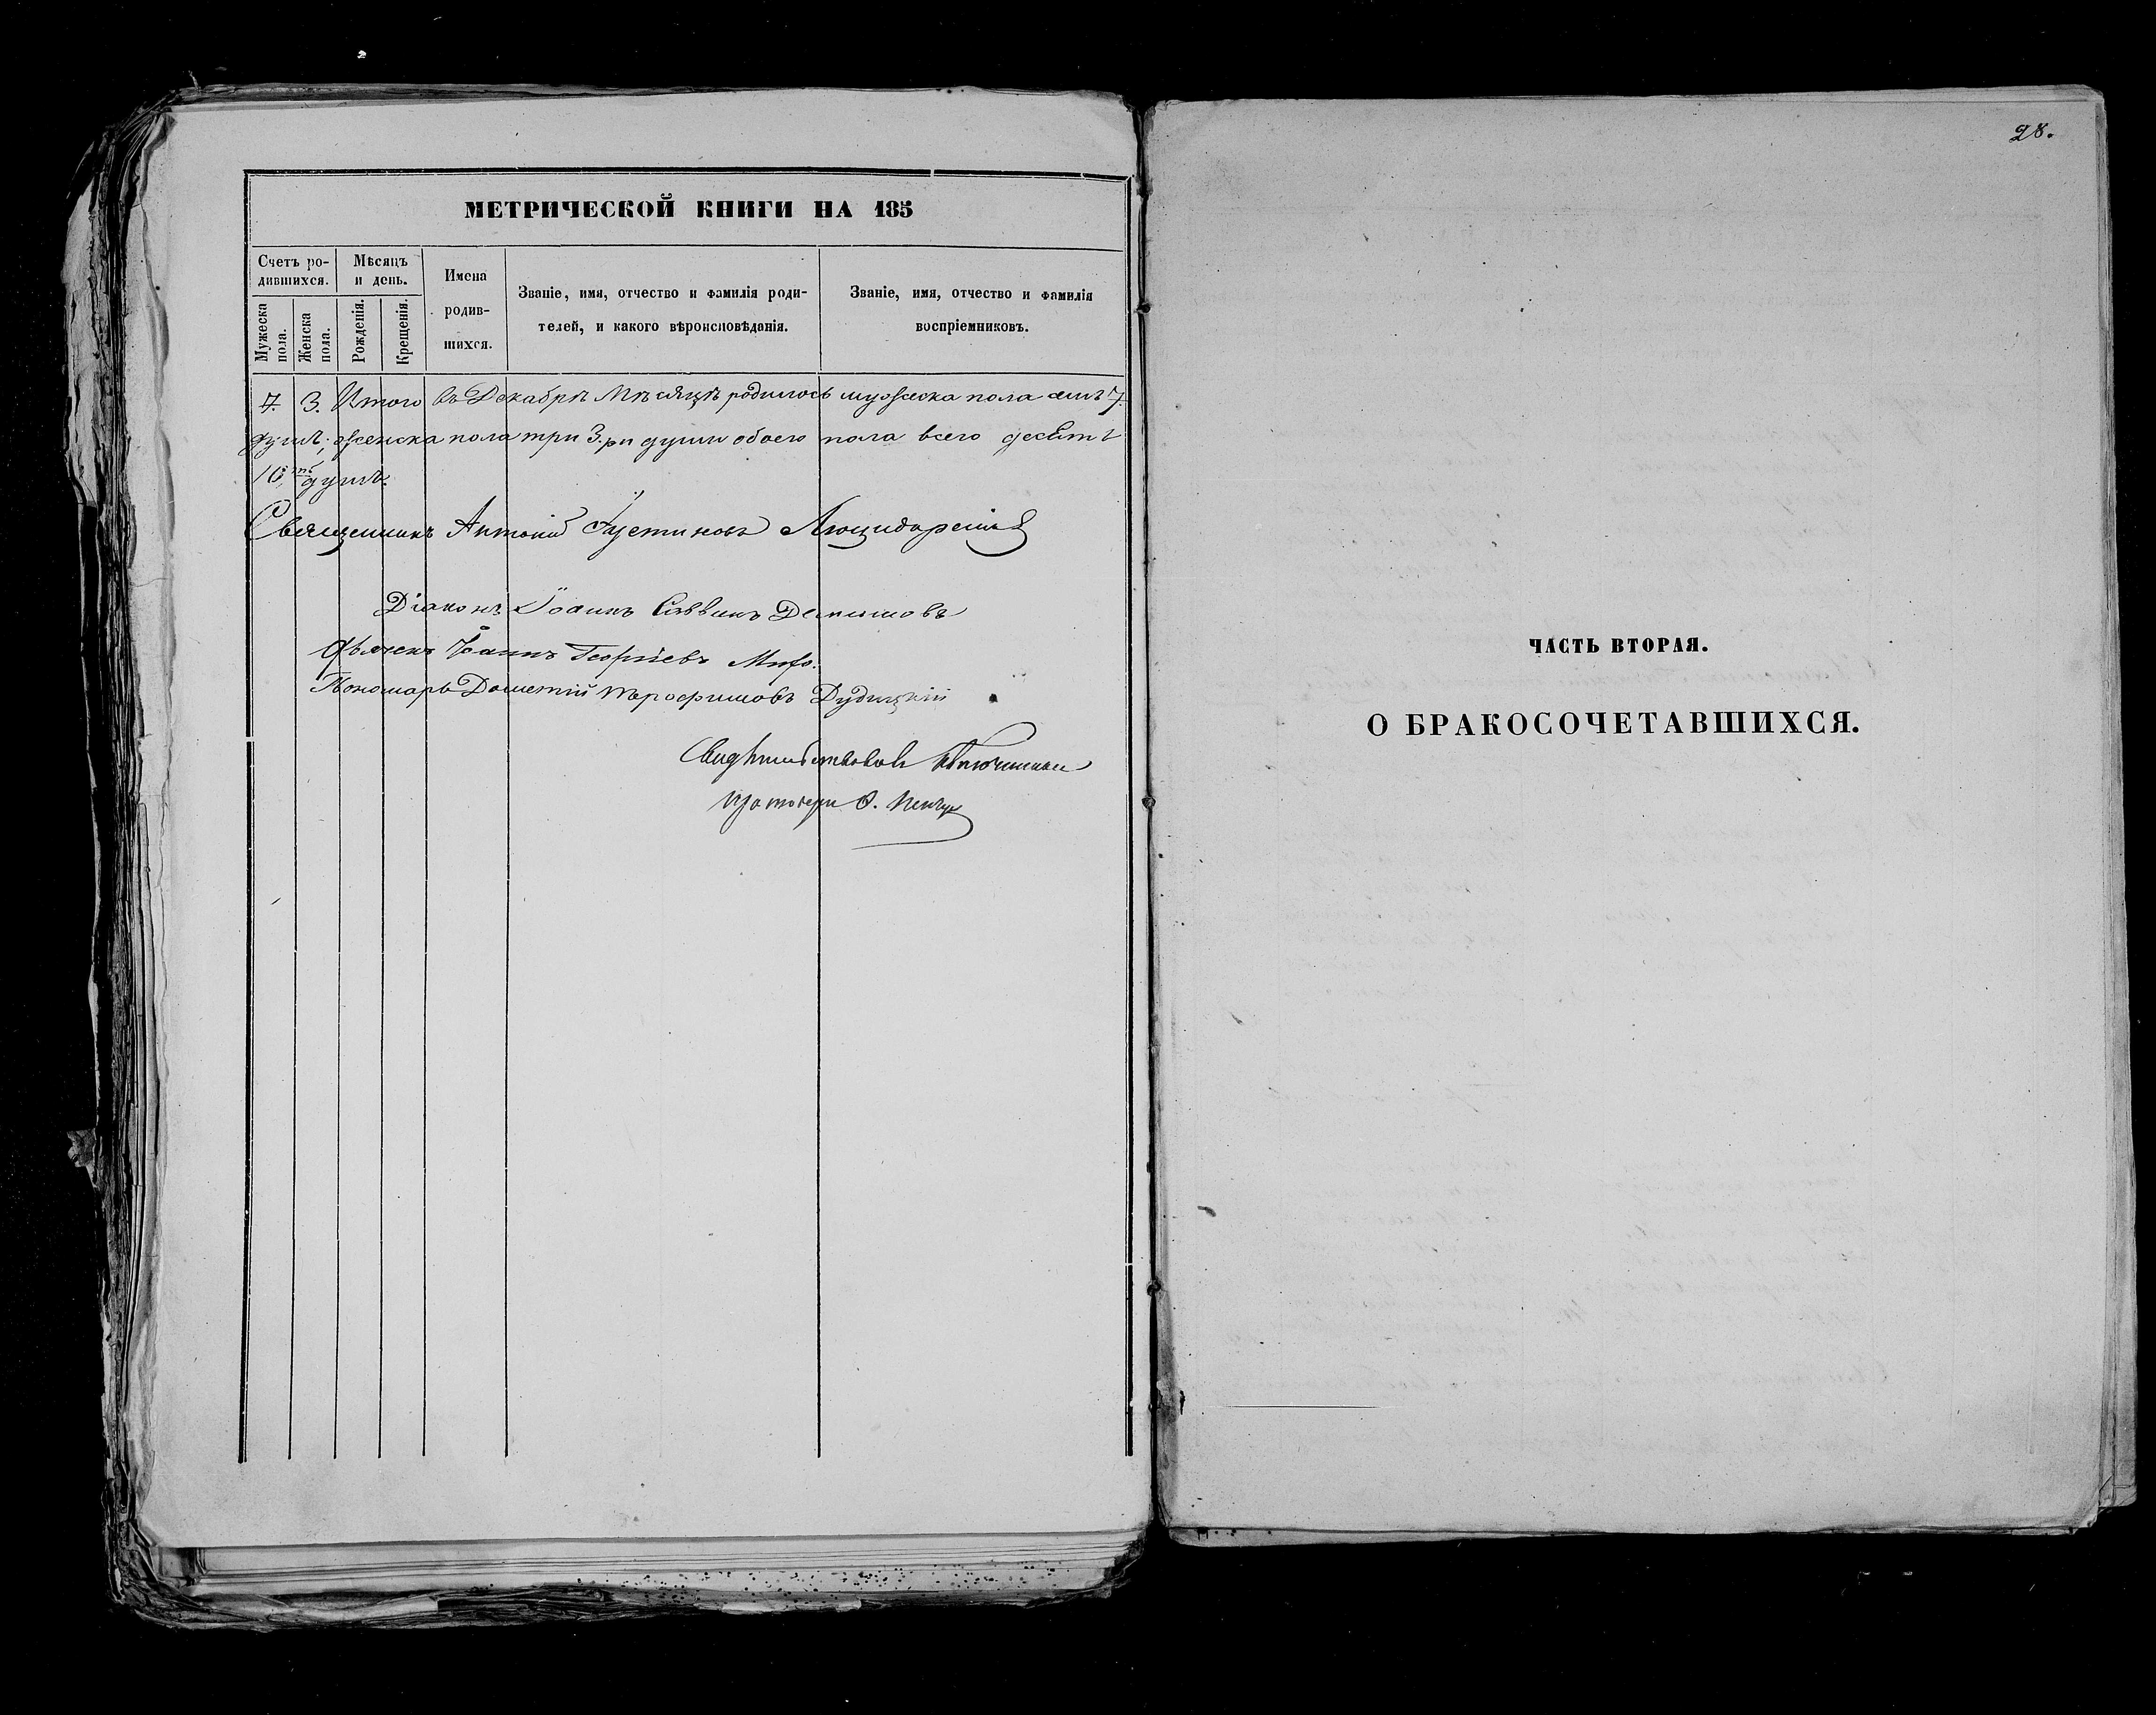 МЕТРИЧЕСКОЙ КНИГИ НА 185
Счетъ ро-
дившихся.
Мѣсяцъ
и день.
Мужеска
пола.
Женска
пола.
Рожденія.
Крещенія.
Имена
родив-
шихся.
Званіе, имя, отчество и фамилія роди-
телей, и какого вѣроисповѣданія.
Званіе, имя, отчество и фамилія
воспріемниковъ.
7. 3. Итого въ Декабрѣ Мѣсяцѣ родилось мужеска пола семь 7.
душъ; женска пола три 3.ри души обоего пола всего десять
10,ть душъ.
Священникъ Антоній Іустиновъ
Діаконъ Іоаннъ Саввинъ
Дьячекъ Іоаннъ Георгіевъ
Пономарь Дометій Трофимовъ Дудицкій
Свидѣтельствовалъ
Протоіерей
28.
ЧАСТЬ ВТОРАЯ.
О БРАКОСОЧЕТАВШИХСЯ.